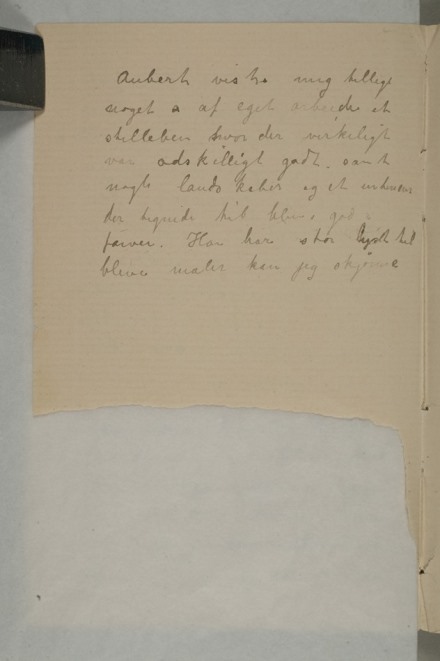 Aubert viste mig tillige
noget af eget arbeide et
stilleben hvor der virkeligt
var adskilligt godt. samt
nogle landskaber og et
der lignede til blive god i
farver. Han har stor lyst til
blive maler kan jeg skjønne